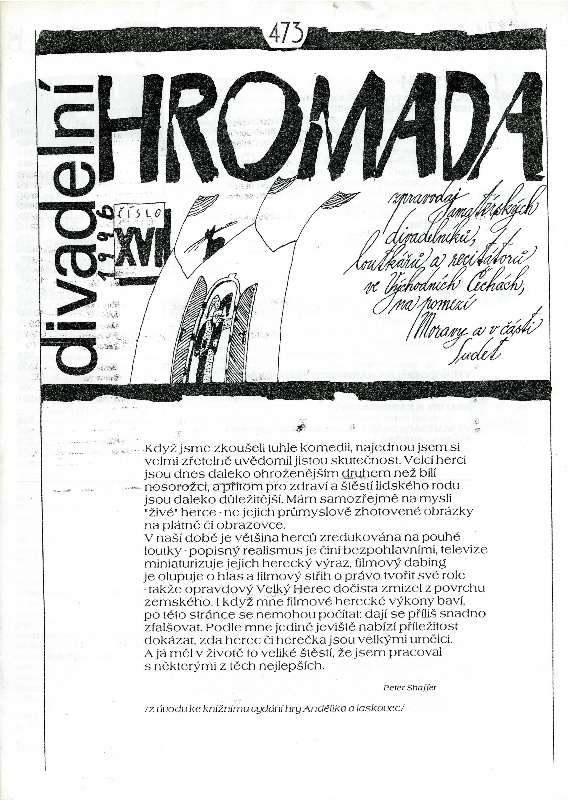 473
divadelní
HROMADA
1996
ČÍSLO
XVII
zpravodaj
amatérských
divadelníků,
loutkářů a recitátorů
ve Východních Čechách,
na pomezí
Moravy a v části
Sudet
Když jsme zkoušeli tuhle komedii, najednou jsem si
velmi zřetelně uvědomil jistou skutečnost. Velcí herci
jsou dnes daleko ohroženějším druhem než bílí
nosorožci, a přitom pro zdraví a štěstí lidského rodu
jsou daleko důležitější. Mám samozřejmě na mysli
"živé" herce - ne jejich průmyslově zhotovené obrázky
na plátně či obrazovce.
V naší době je většina herců zredukována na pouhé
loutky - popisný realismus je činí bezpohlavními, televize
miniaturizuje jejich herecký výraz, filmový dabing
je olupuje o hlas a filmový střih o právo tvořit své role
- takže opravdový Velký Herec dočista zmizel z povrchu
zemského. I když mne filmové herecké výkony baví,
po této stránce se nemohou počítat: dají se příliš snadno
zfalšovat. Podle mne jedině jeviště nabízí příležitost
dokázat, zda herec či herečka jsou velkými umělci.
A já měl v životě to veliké štěstí, že jsem pracoval
s některými z těch nejlepších.
Peter Shaffer
/z úvodu ke knižnímu vydání hry Andělika a laskovec/